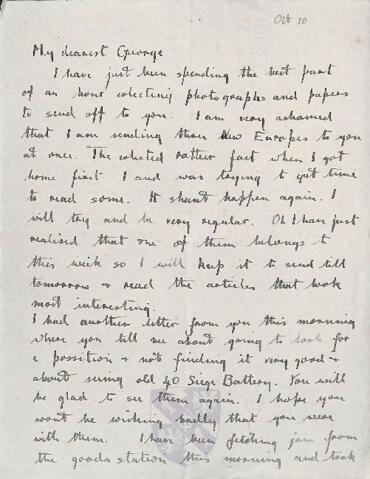 Oct 10
My dearest George
I have just been spending the best part
of an hour colecting photographs and papers
to send off to you. I am very ashamed
that I am sending three New Europes to you
at once. The colected rather fast when I got
home first I and was trying to get time
to read some. It shant happen again. I
will try and be very regular. Oh I have just
realised that one of them belongs to
this week so I will keep it to send till
tomorrow & read the articles that look
most interesting.
I had another letter from you this morning
where you tell me about going to look for
a possition & not finding it very good &
about seeing old 40 Siege Battery. You will
be glad to see them again. I hope you
wont be wishing badly that you were
with them. I have been fetching jam from
the goods station this morning and took